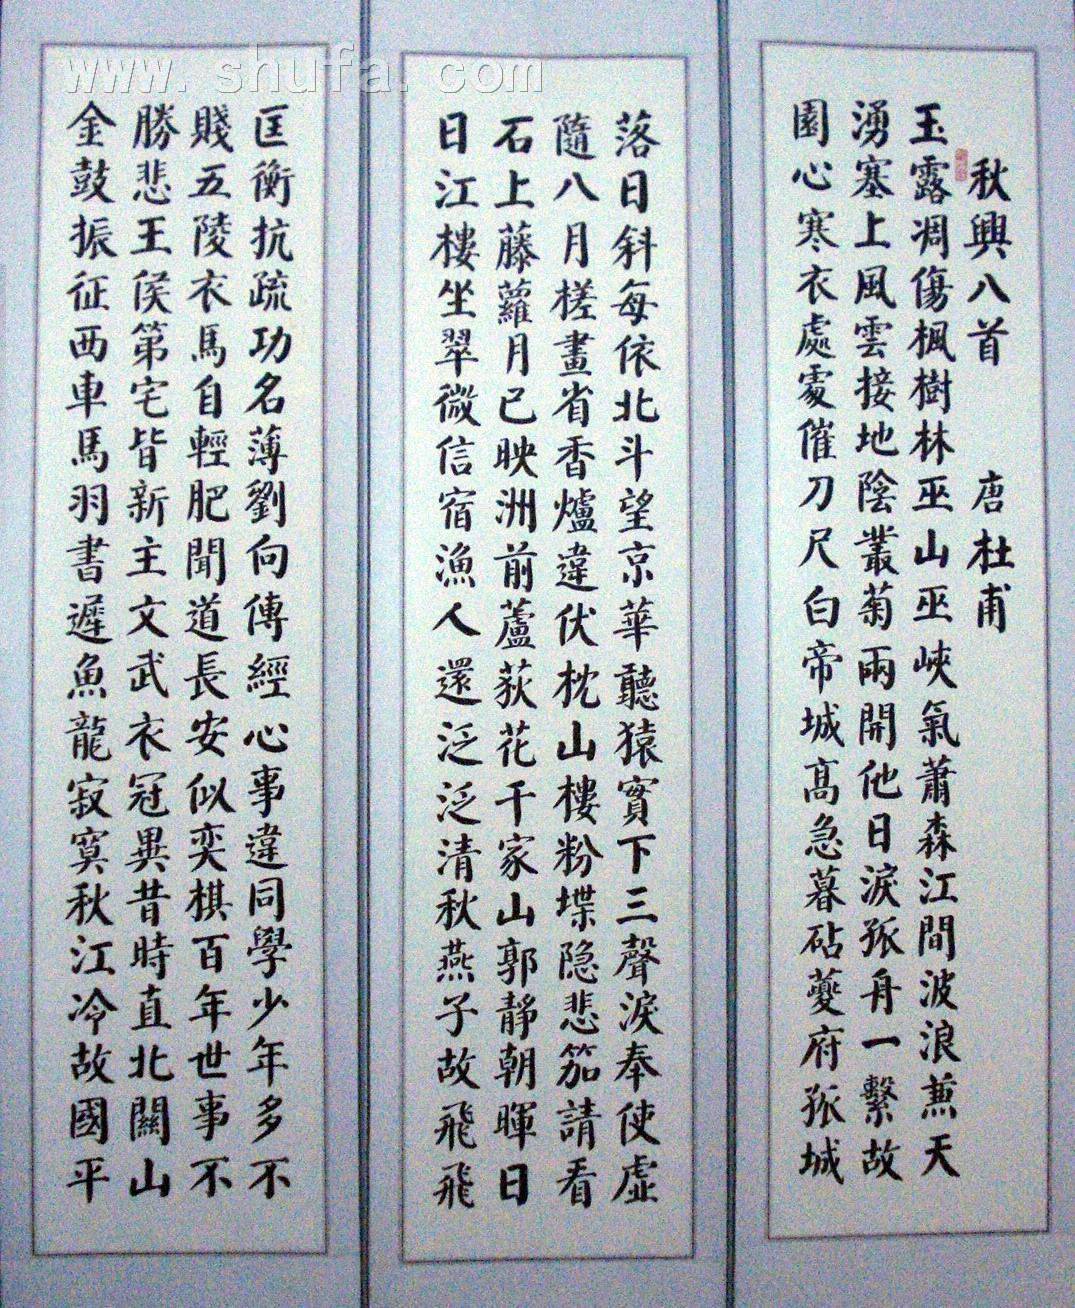 秋興八首 唐杜甫
玉露凋傷楓樹林巫山巫峽氣蕭森江間波浪兼天
湧塞上風雲接地陰叢菊兩開他日淚孤舟一繫故
園心寒衣處處催刀尺白帝城高急暮砧夔府孤城
落日斜每依北斗望京華聽猿實下三聲淚奉使虛
隨八月槎畫省香爐違伏枕山樓粉堞隐悲笳請看
石上藤蘿月已映洲前蘆荻花千家山郭靜朝暉日
日江樓坐翠微信宿漁人還泛泛清秋燕子故飛飛
匡衡抗疏功名薄劉向傳經心事違同學少年多不
賤五陵衣馬自輕肥聞道長安似奕棋百年世事不
勝悲王侯第宅皆新主文武衣冠異昔時直北關山
金鼓振征西車馬羽書遲魚龍寂寞秋江冷故國平
www.shufa.com